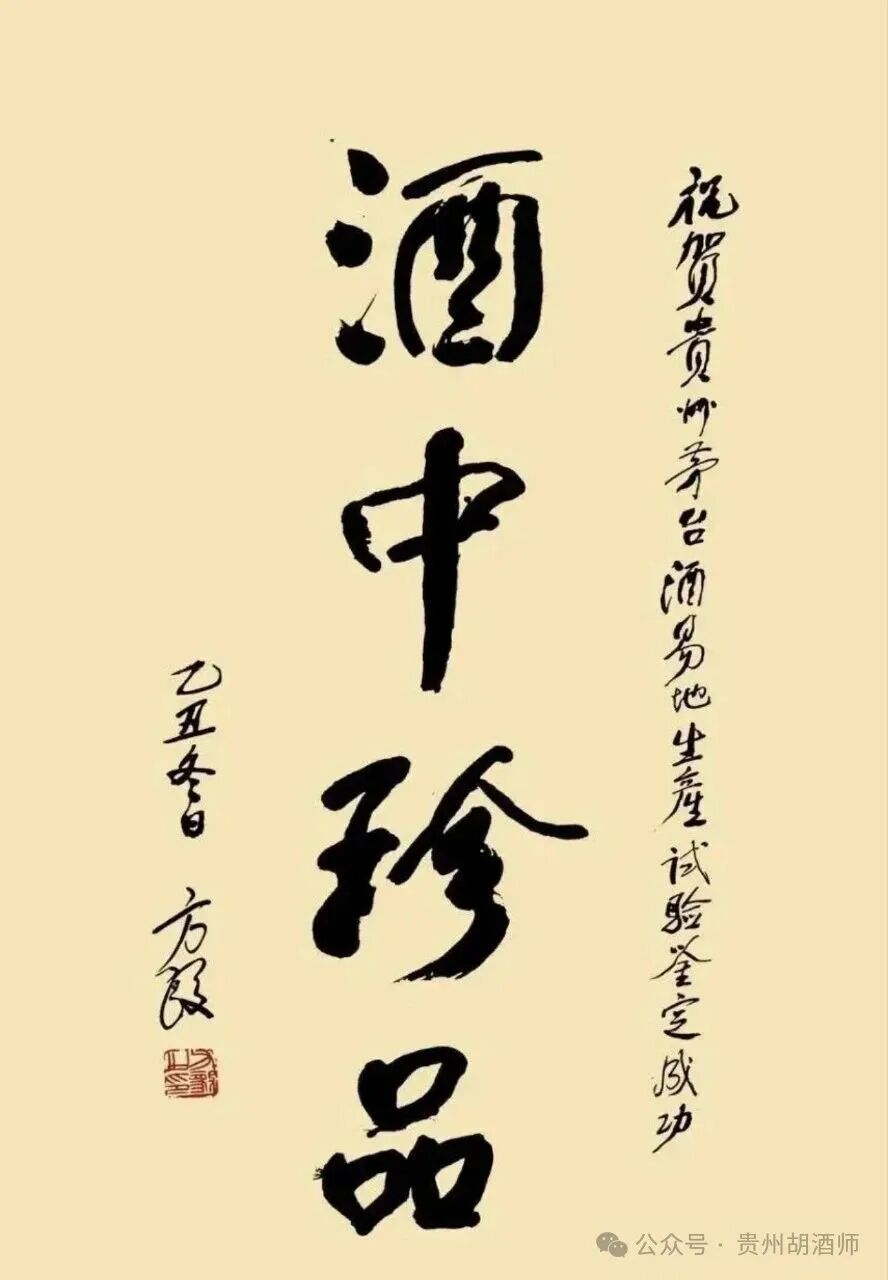 祝贺贵州茅台酒易地生產试验鉴定成功
酒中珍品
乙丑冬日
方毅
公众号 · 贵州胡酒师